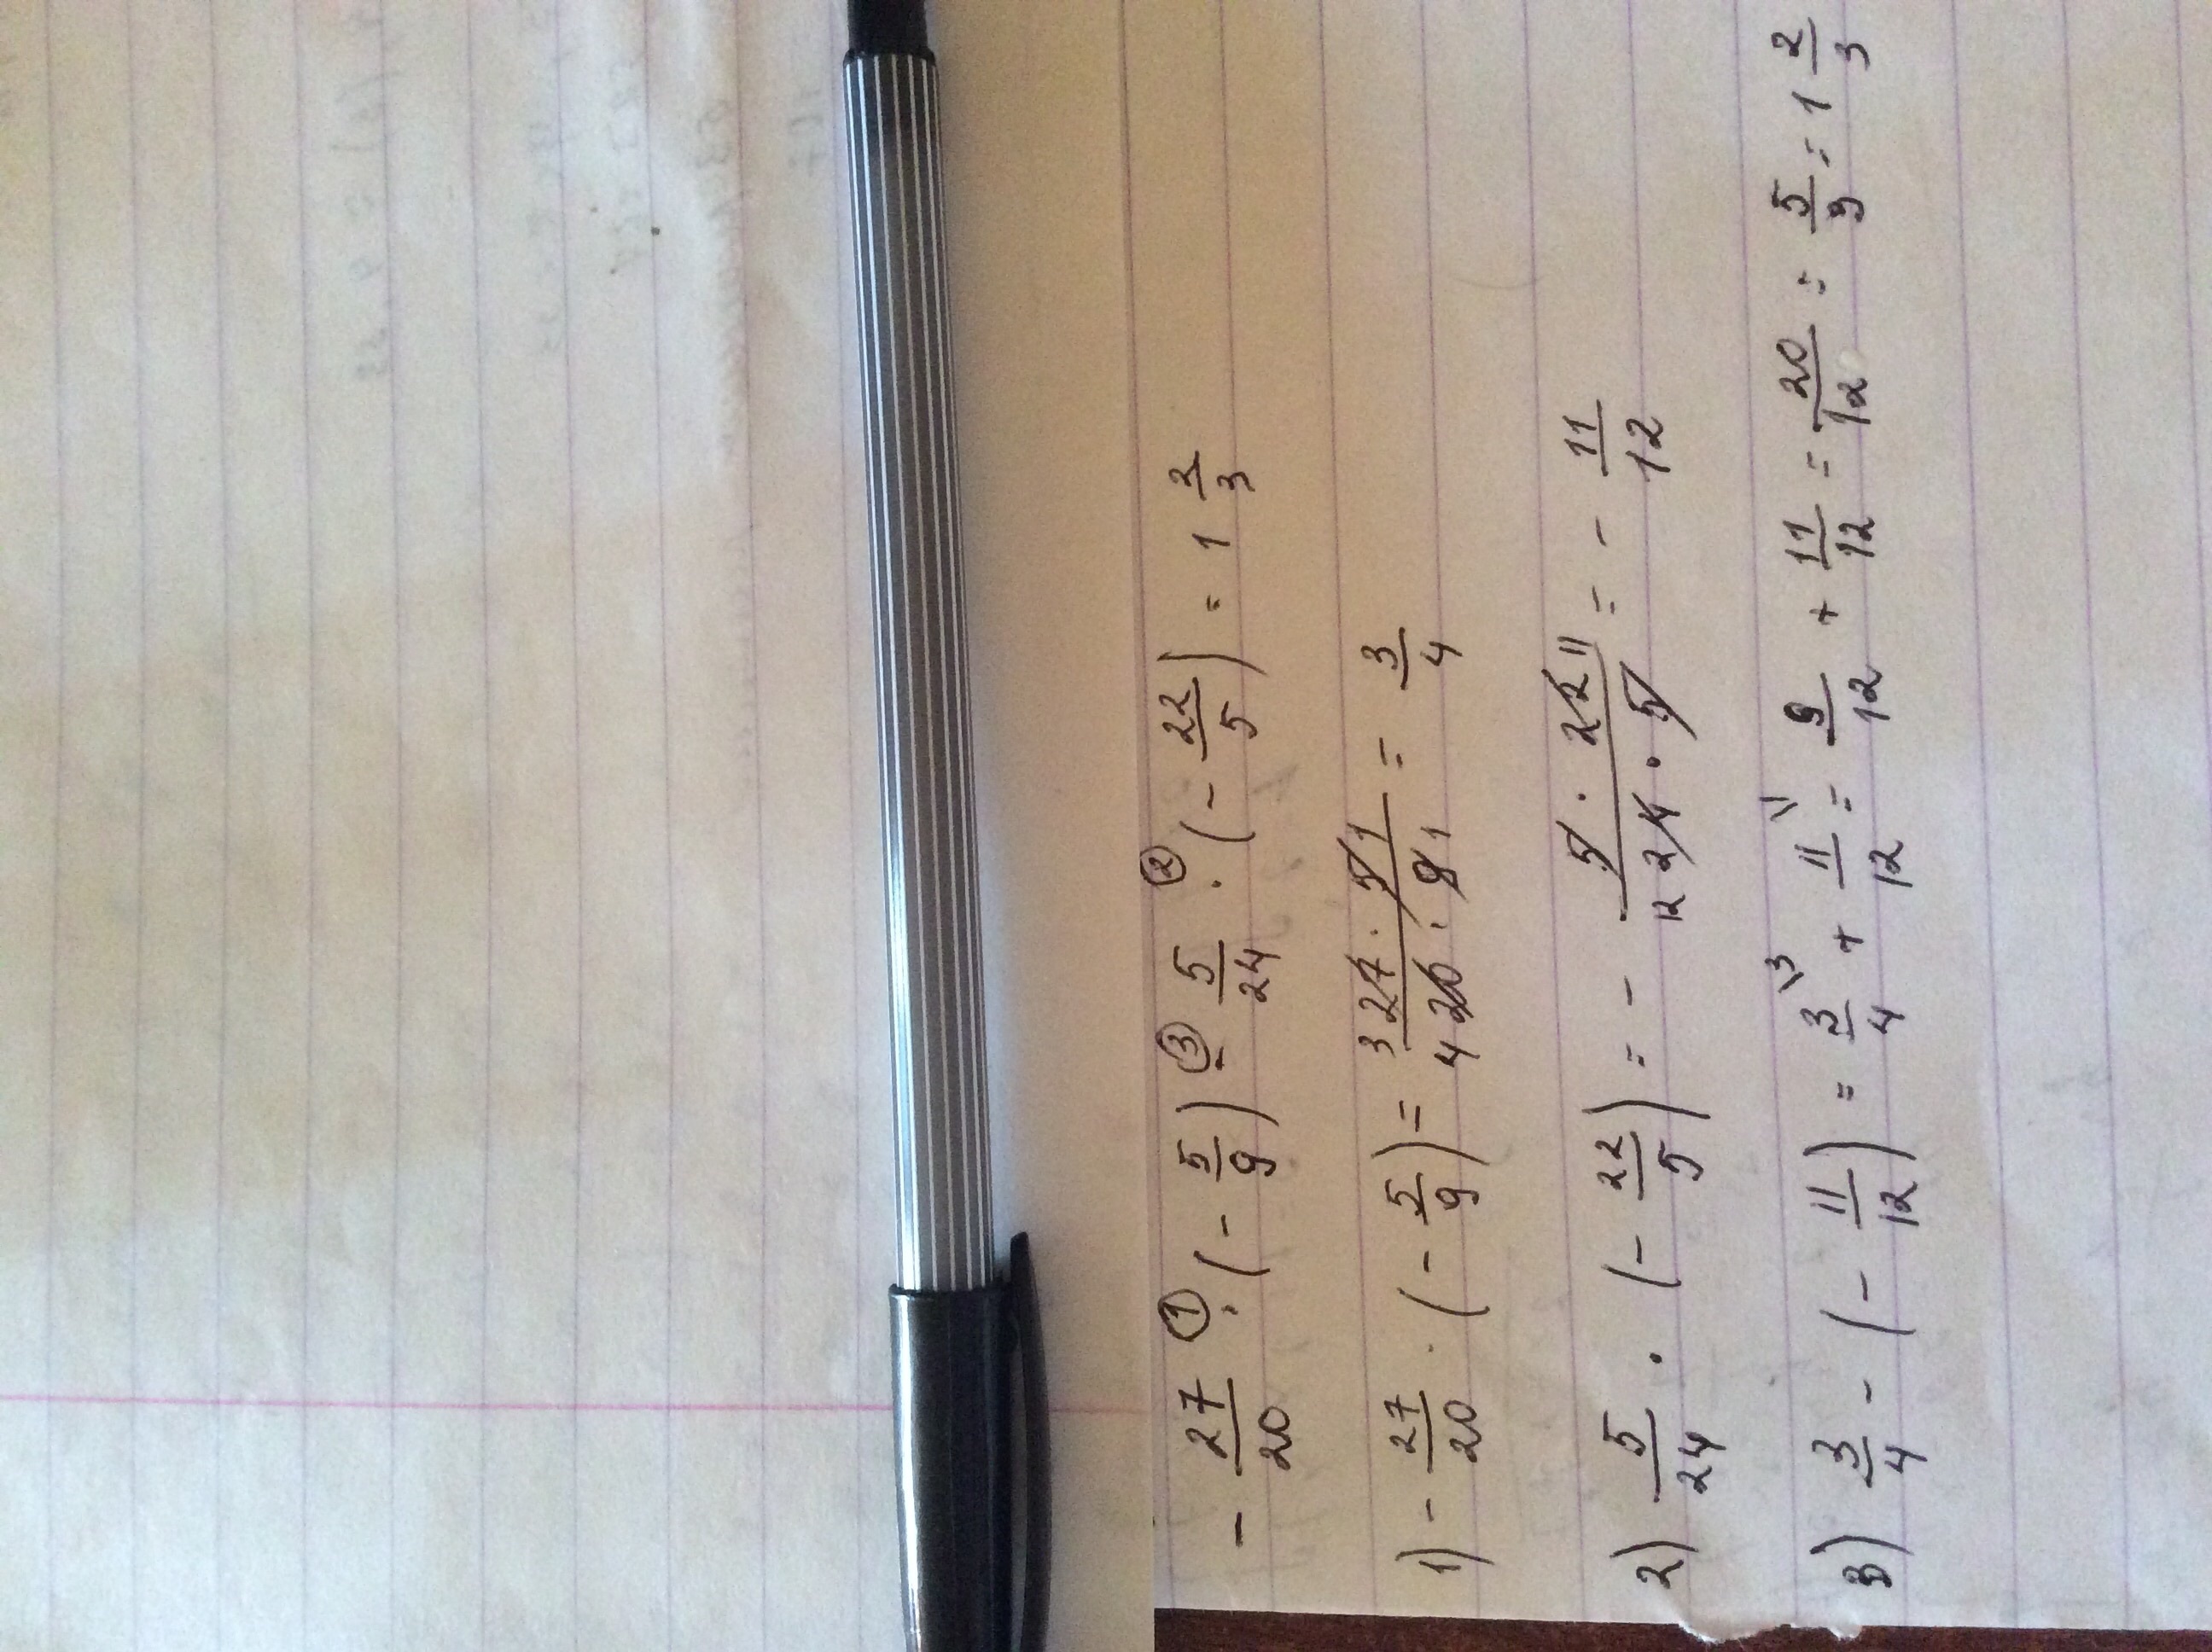 - 27/20 ① · (- 5/9) ③ - 5/24 ② · (- 22/5) = 1 2/3
1) - 27/20 · (- 5/9) = 3 27 · 5 1 / 4 20 · 9 1 = 3/4
2) 5/24 · (- 22/5) = - 5 · 22 11 / 12 24 · 5 = - 11/12
3) 3/4 - (- 11/12) = 3/4 \3 + 11/12 \1 = 9/12 + 11/12 = 20/12 = 5/3 = 1 2/3